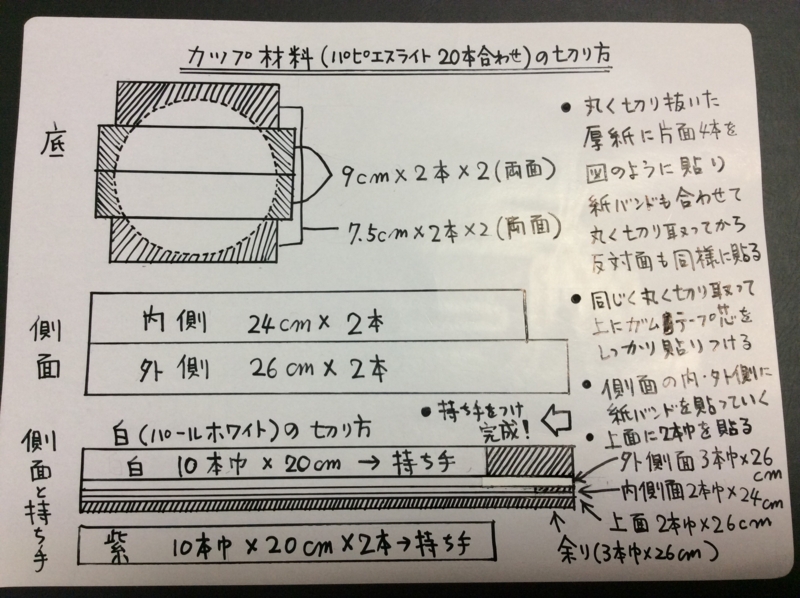 カップ材料(パピエスライト 20本合わせ)の切り方
底
9cm×2本×2(両面)
7.5cm×2本×2(両面)
• 丸く切り抜いた
厚紙に片面4本を
図のように貼り
紙バンドも合わせて
丸く切り取ってから
反対面も同様に貼る
• 同じく丸く切り取って
上にガムテープ芯を
しっかり貼りつける
• 側面の内・外側に
紙バンドを貼っていく
• 上面に2本巾を貼る
• 持ち手をつけ
完成!
側面
内側 24cm×2本
外側 26cm×2本
側面と持ち手
白(パールホワイト)の切り方
白 10本巾×20cm→持ち手
外側面3本巾×26cm
内側面2本巾×24cm
上面2本巾×26cm
余り(3本巾×26cm)
紫 10本巾×20cm×2本→持ち手